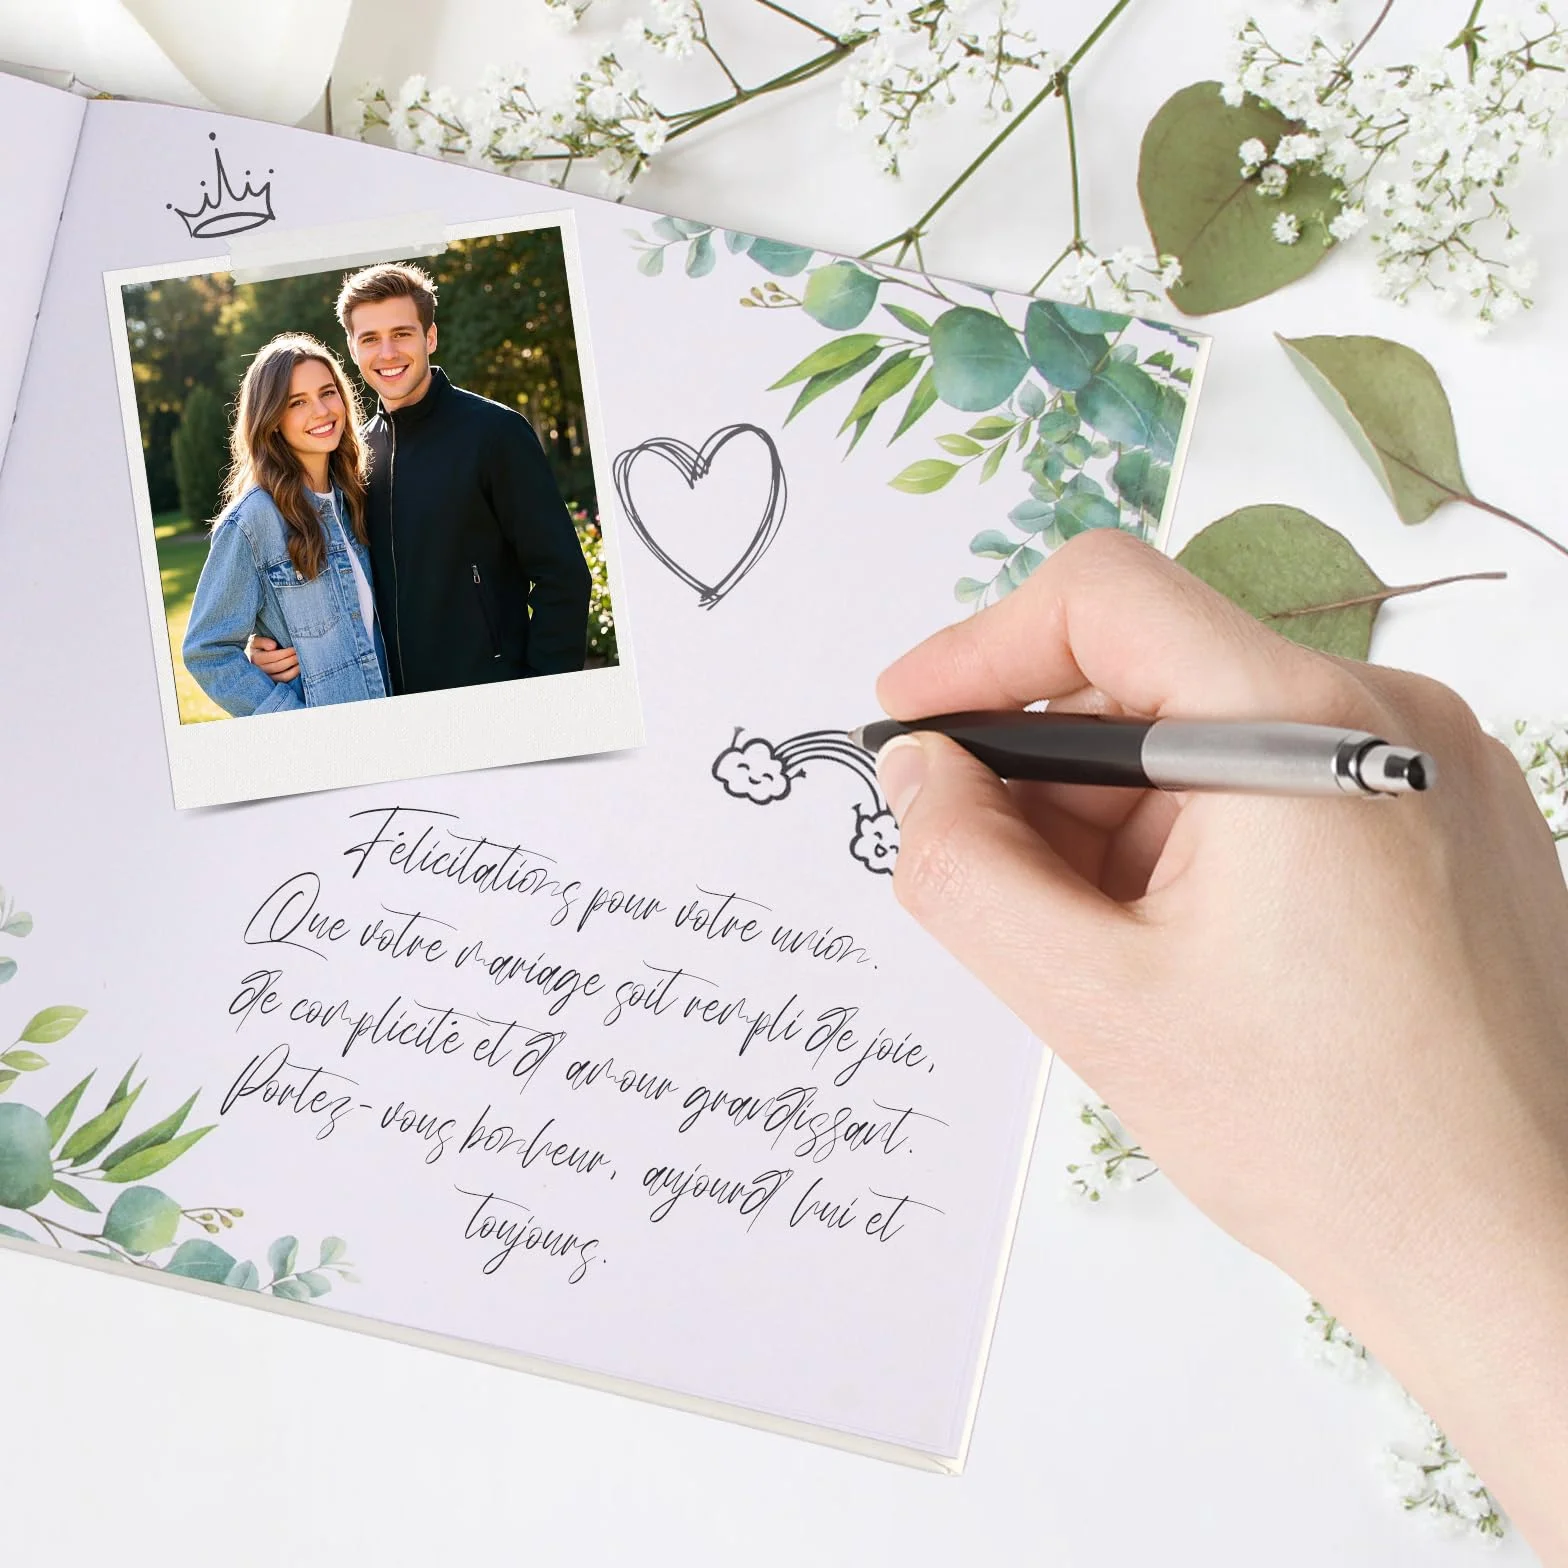 Félicitations pour votre union.
Que votre mariage soit rempli de joie,
de complicité et d amour grandissant.
Portez-vous bonheur, aujourd hui et
toujours.